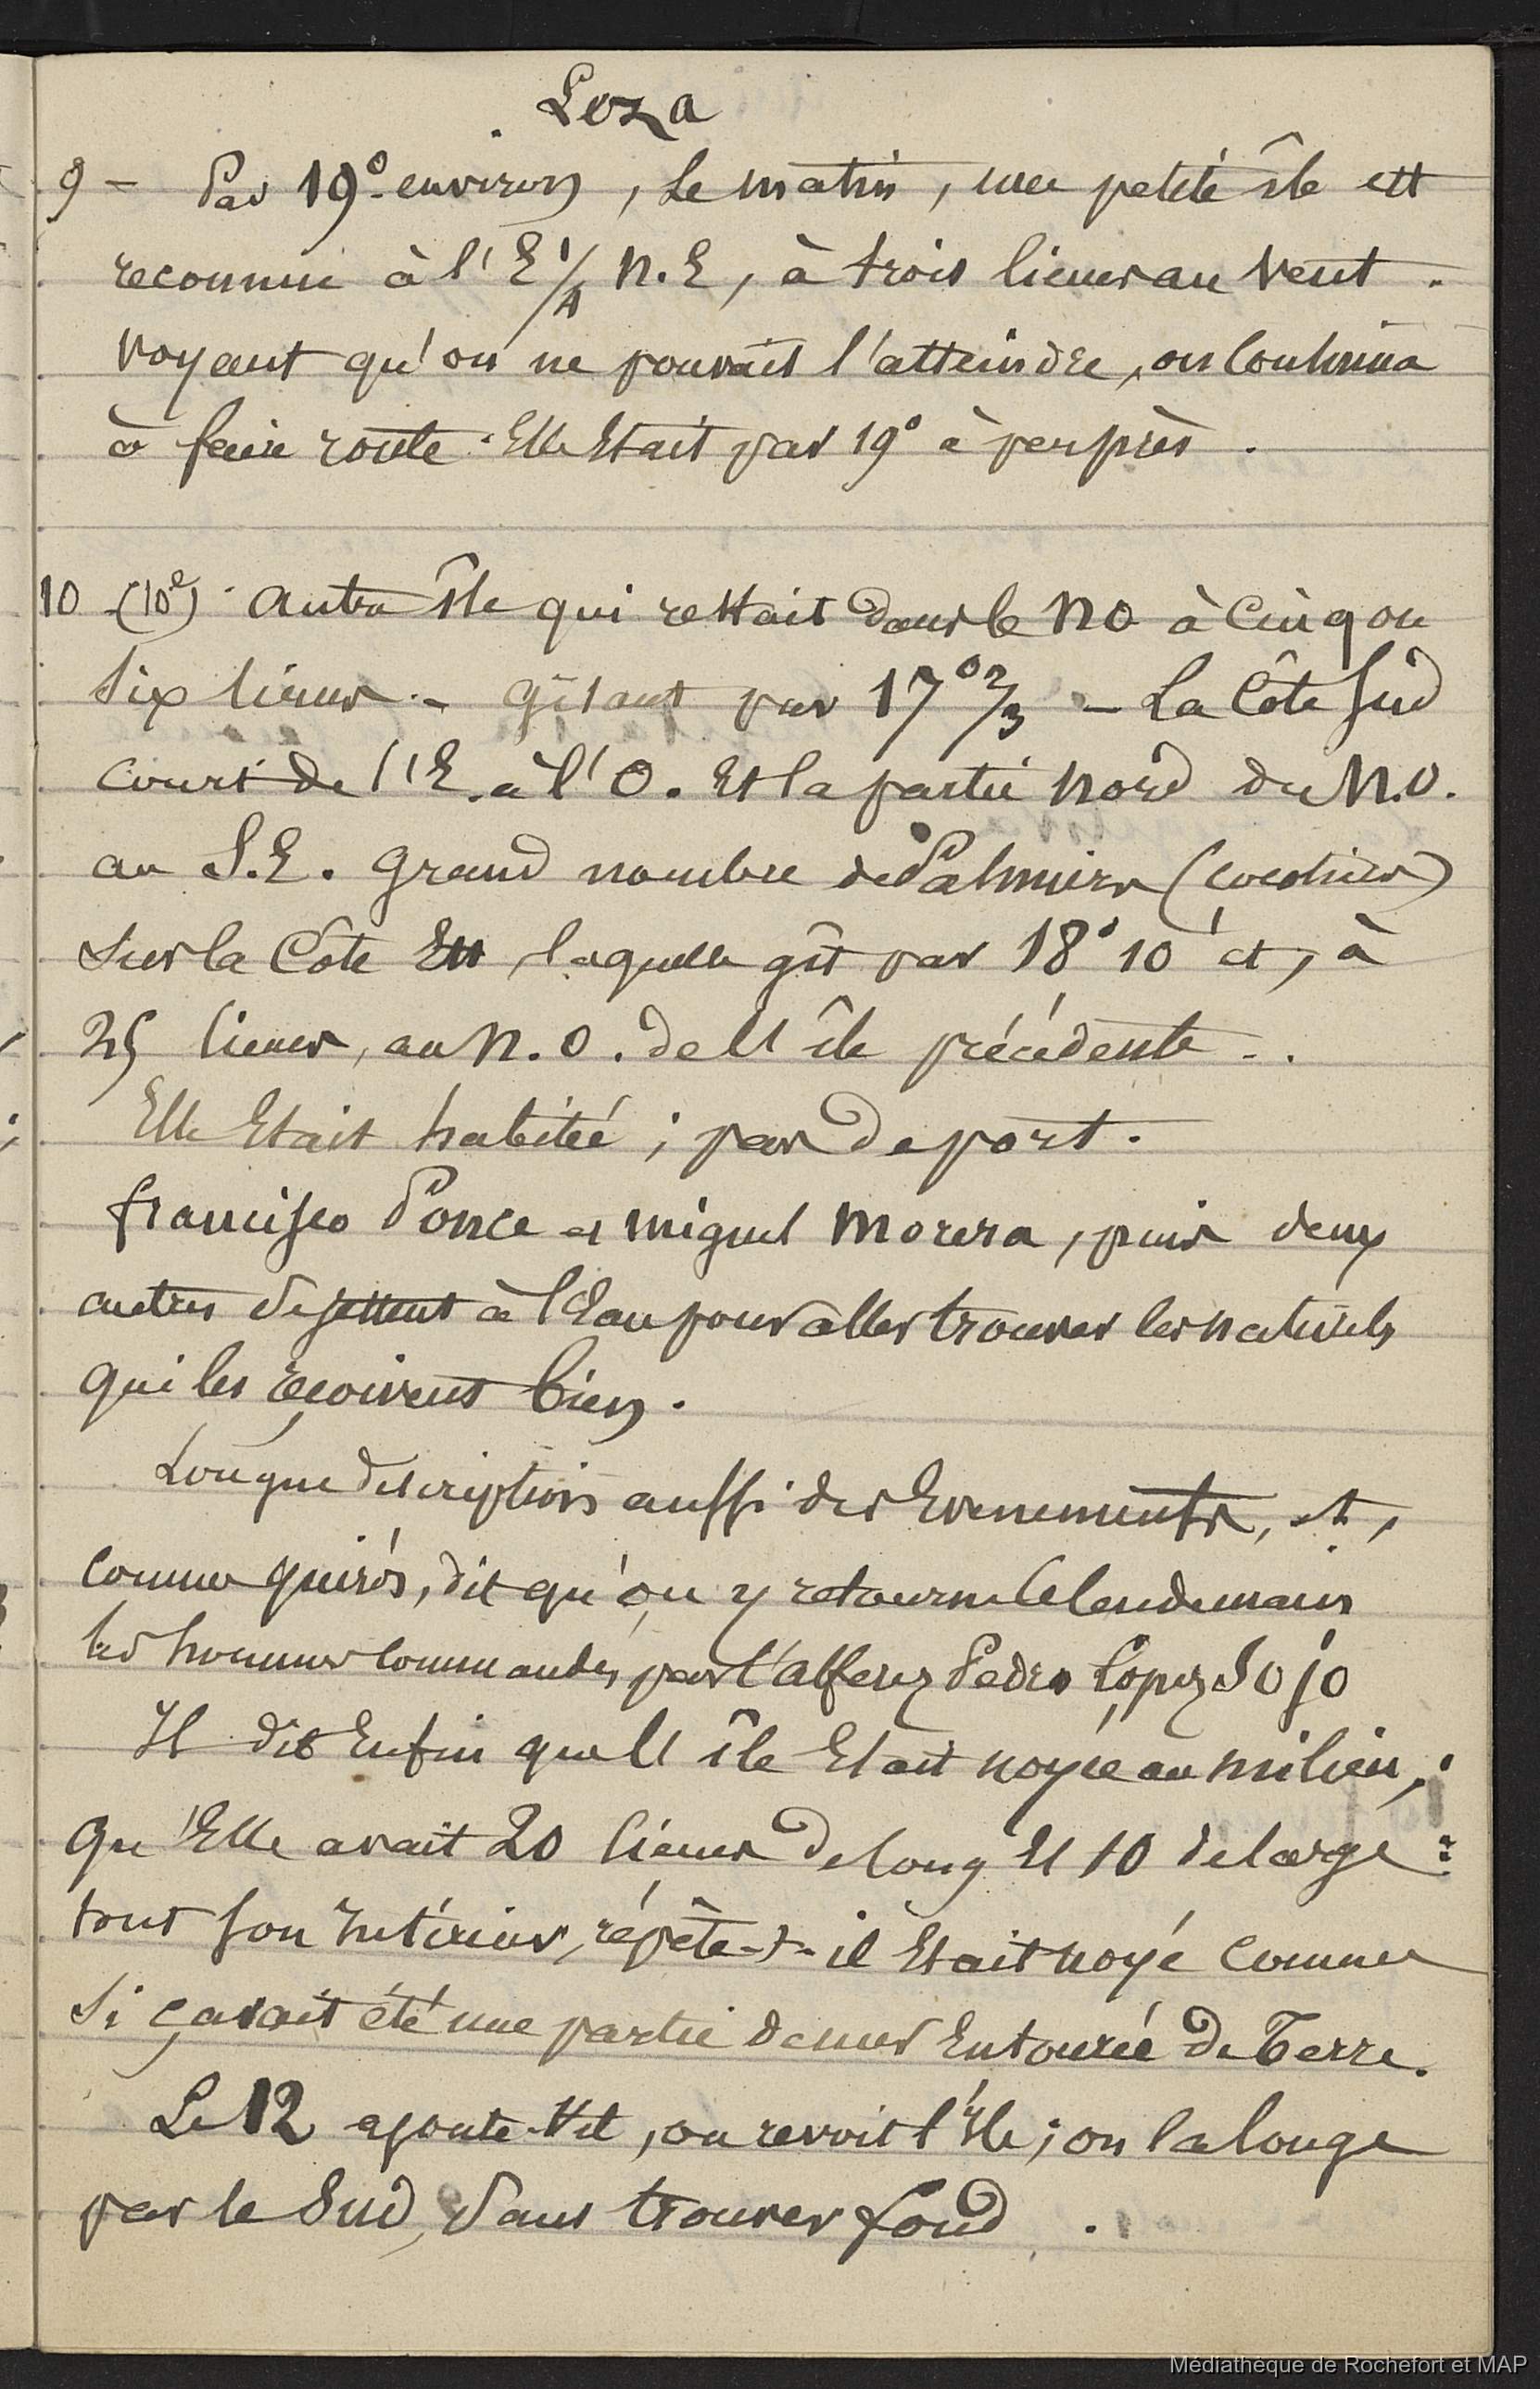 Leza
9 – Par 19° environ, le matin, une petite île est
reconnue à l'E 1/4 N.E, à trois lieues au vent.
Voyant qu'on ne pouvait l'atteindre, on continua
à faire route. Elle était par 19° à peu près.
10 (10e) autre île qui restait dans le NO à cinq ou
six lieues – gisant par 17° 2/3 – La côte sud
court de l'E. à l'O. et la partie nord du N.O.
au S.E. grand nombre de Palmiers (cocotiers)
sur la côte Est, laquelle gît par 18° 10' et, à
25 lieues, au N.O. de l'île précédente..
Elle était habitée; pas de port.
francisco Ponce et miguel Morera, puis deux
autres se jettent à l'eau pour aller trouver les naturels
qui les reçoivent bien.
Longue description aussi des événements, et,
comme quirós, dit qu'on y retourne le lendemain
les hommes commandés par l'alferez Pedro Lopez Sojo
Il dit enfin que l'île était noyée au milieu;
qu'Elle avait 20 lieues de long et 10 de large:
tout son intérieur, répète-t-il était noyé comme
si çavait été une partie de mer entourée de Terre.
Le 12 ajoute-t-il, on revoit l'île; on la longe
par le Sud, sans trouver fond.
Médiathéque de Rochefort et MAP